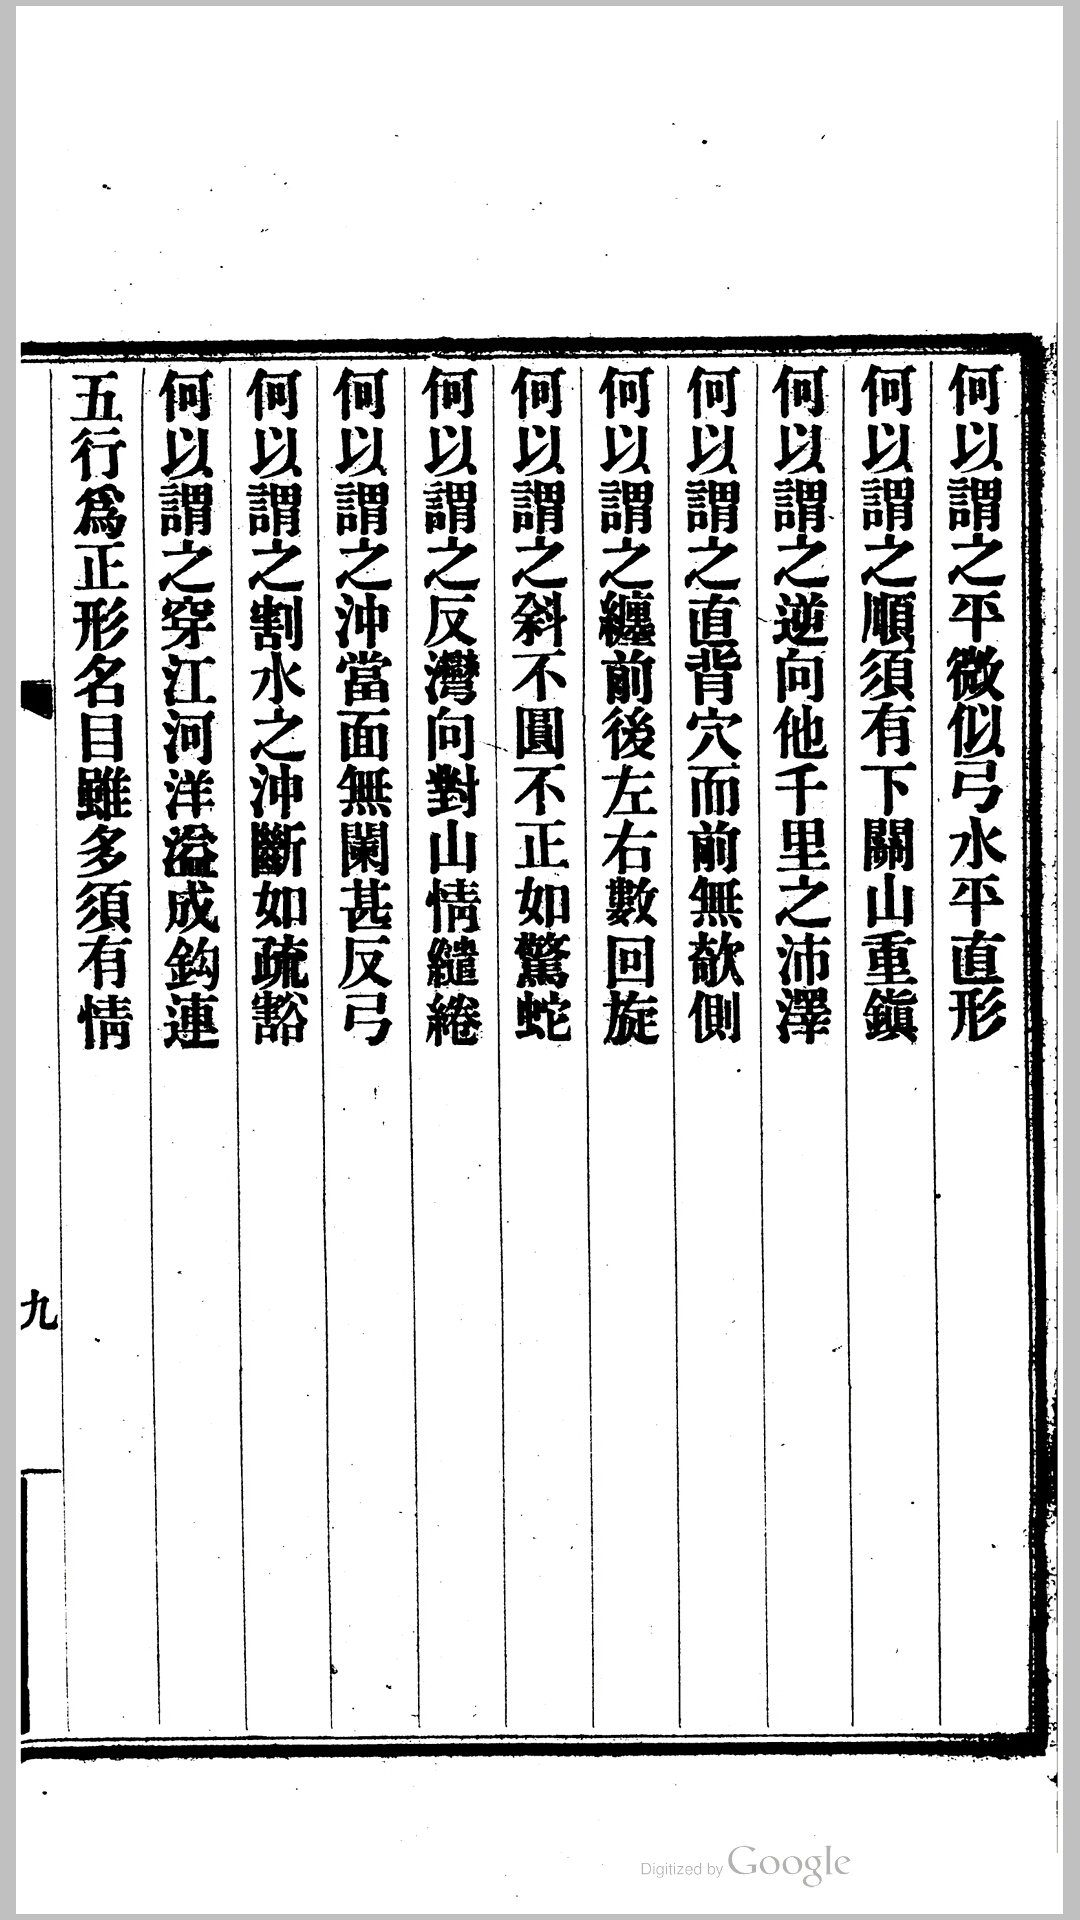 何以謂之平微似弓水平直形
何以謂之順須有下關山重鎭
何以謂之逆向他千里之沛澤
何以謂之直背穴而前無欹側
何以謂之纏前後左右數回旋
何以謂之斜不圓不正如驚蛇
何以謂之反灣向對山情繾綣
何以謂之沖當面無闌甚反弓
何以謂之割水之沖斷如疏豁
何以謂之穿江河洋溢成鈎連
五行爲正形名目雖多須有情
九
Digitized by Google